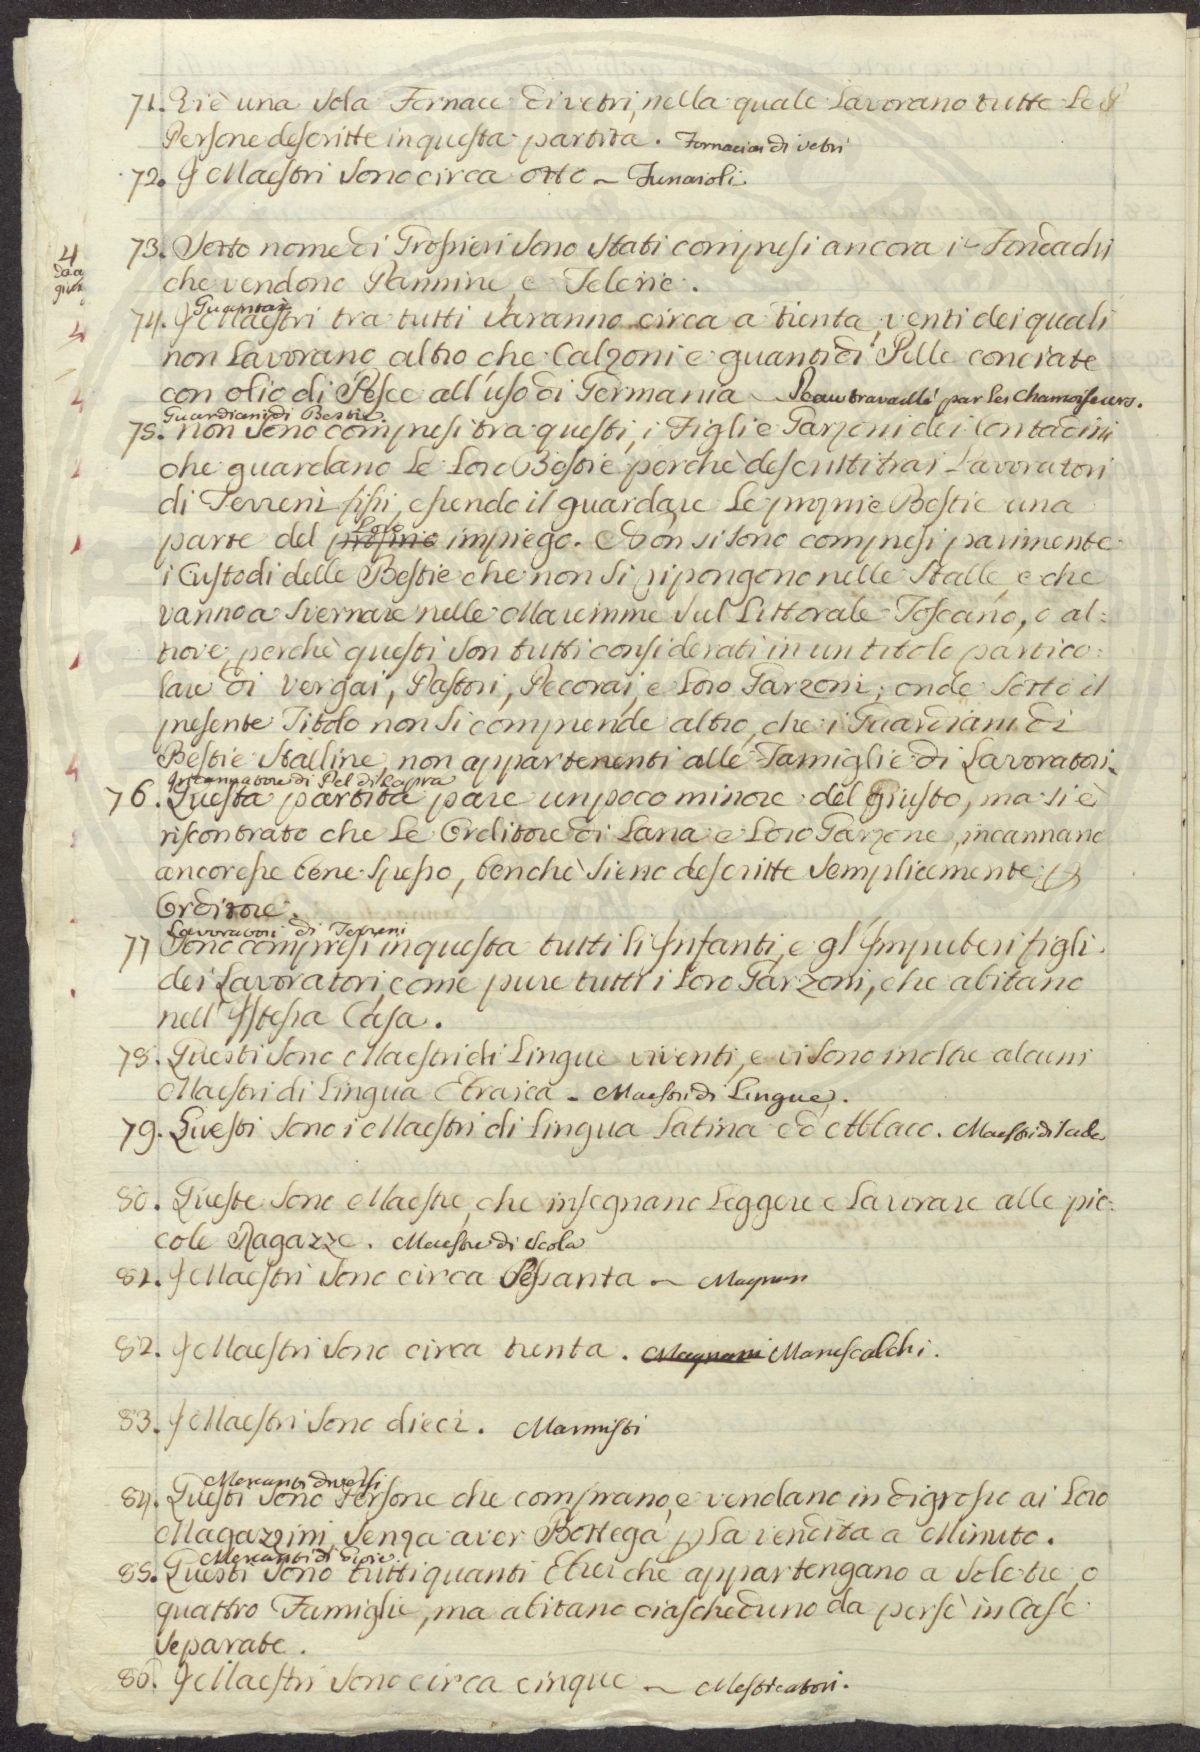 71. Vi è una sola Fornace di vetri, nella quale Lavorano tutte Le
Persone descritte in questa partita. Fornaciai di vetri
72. I Maestri sono circa otto ~ Funaioli
4
73. Sotto nome di Trosieri sono stati compresi ancora i Fondachi
che vendono Pannine, e Telerie.
Guantai
74. I Maestri tra tutti saranno circa a trenta, venti dei quali
non Lavorano altro che Calzoni e guanti di Pelle conciate
con olio di Pesce all'uso di Germania ~ Peau travaillé par les Chamoiseurs.
Guardiani di Bestie
75. non sono compresi tra questi, i Figli e Garzoni dei Contadini
che guardano Le Loro Bestie perchè descritti trai Lavoratori
di Terreni fissi, essendo il guardare Le proprie Bestie una
Loro
parte del proprio impiego. Non si sono compresi parimente
i Custodi delle Bestie che non si ripongono nelle Stalle, e che
vanno a svernare nelle Maremme sul Littorale Toscano, o al=
trove, perchè questi son tutti considerati in un titolo partico=
lare di Vergai, Pastori, Pecorai, e Loro Garzoni; onde sotto il
presente Titolo non si comprende altro, che i Guardiani di
Bestie Stalline, non appartenenti alle Famiglie di Lavoratori.
Incannatore di Pel di Capra
76. Questa partita pare un poco minore del giusto, ma si è
riscontrato che Le Orditore di Lana e Loro Garzone, incannano
ancoresse bene spesso, benchè sieno descritte semplicemente p
Orditore.
Lavoratori di Terreni
77 Sono compresi in questa tutti li Infanti, e gl'Impuberi figli
dei Lavoratori, come pure tutti i Loro Garzoni, che abitano
nell'Istessa Casa.
78. Questi sono Maestri di Lingue viventi, e vi sono inoltre alcuni
Maestri di Lingua Ebraica - Maestri di Lingue.
79. Questi sono i Maestri di Lingua Latina ed Abbaco. Maestri di
80. Queste sono Maestre, che insegnano Leggere e Lavorare alle pic=
cole Ragazze. Maestre di Scola
81. I Maestri sono circa Sessanta ~ Magnani
82. I Maestri sono circa trenta. Magnani Maniscalchi.
83. I Maestri sono dieci. Marmisti
Mercanti diversi
84. Questi sono Persone che comprano, e vendano in digrosso ai Loro
Magazzini, senza aver Bottega p la vendita a Minuto.
Mercanti di Gioie
85. Questi sono tutti quanti Ebrei che appartengano a sole tre, o
quattro Famiglie, ma abitano ciascheduno da persè in Case
separate.
86. I Maestri sono circa cinque ~ Mesticatori.